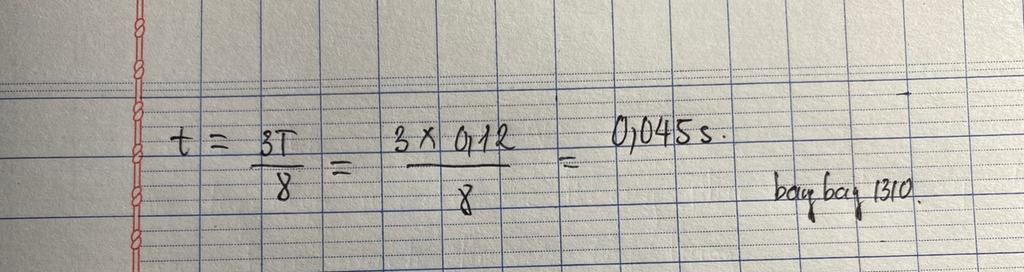 t = 3T/8 = 3 × 0,12/8 = 0,045 s.
bay bay 1310.